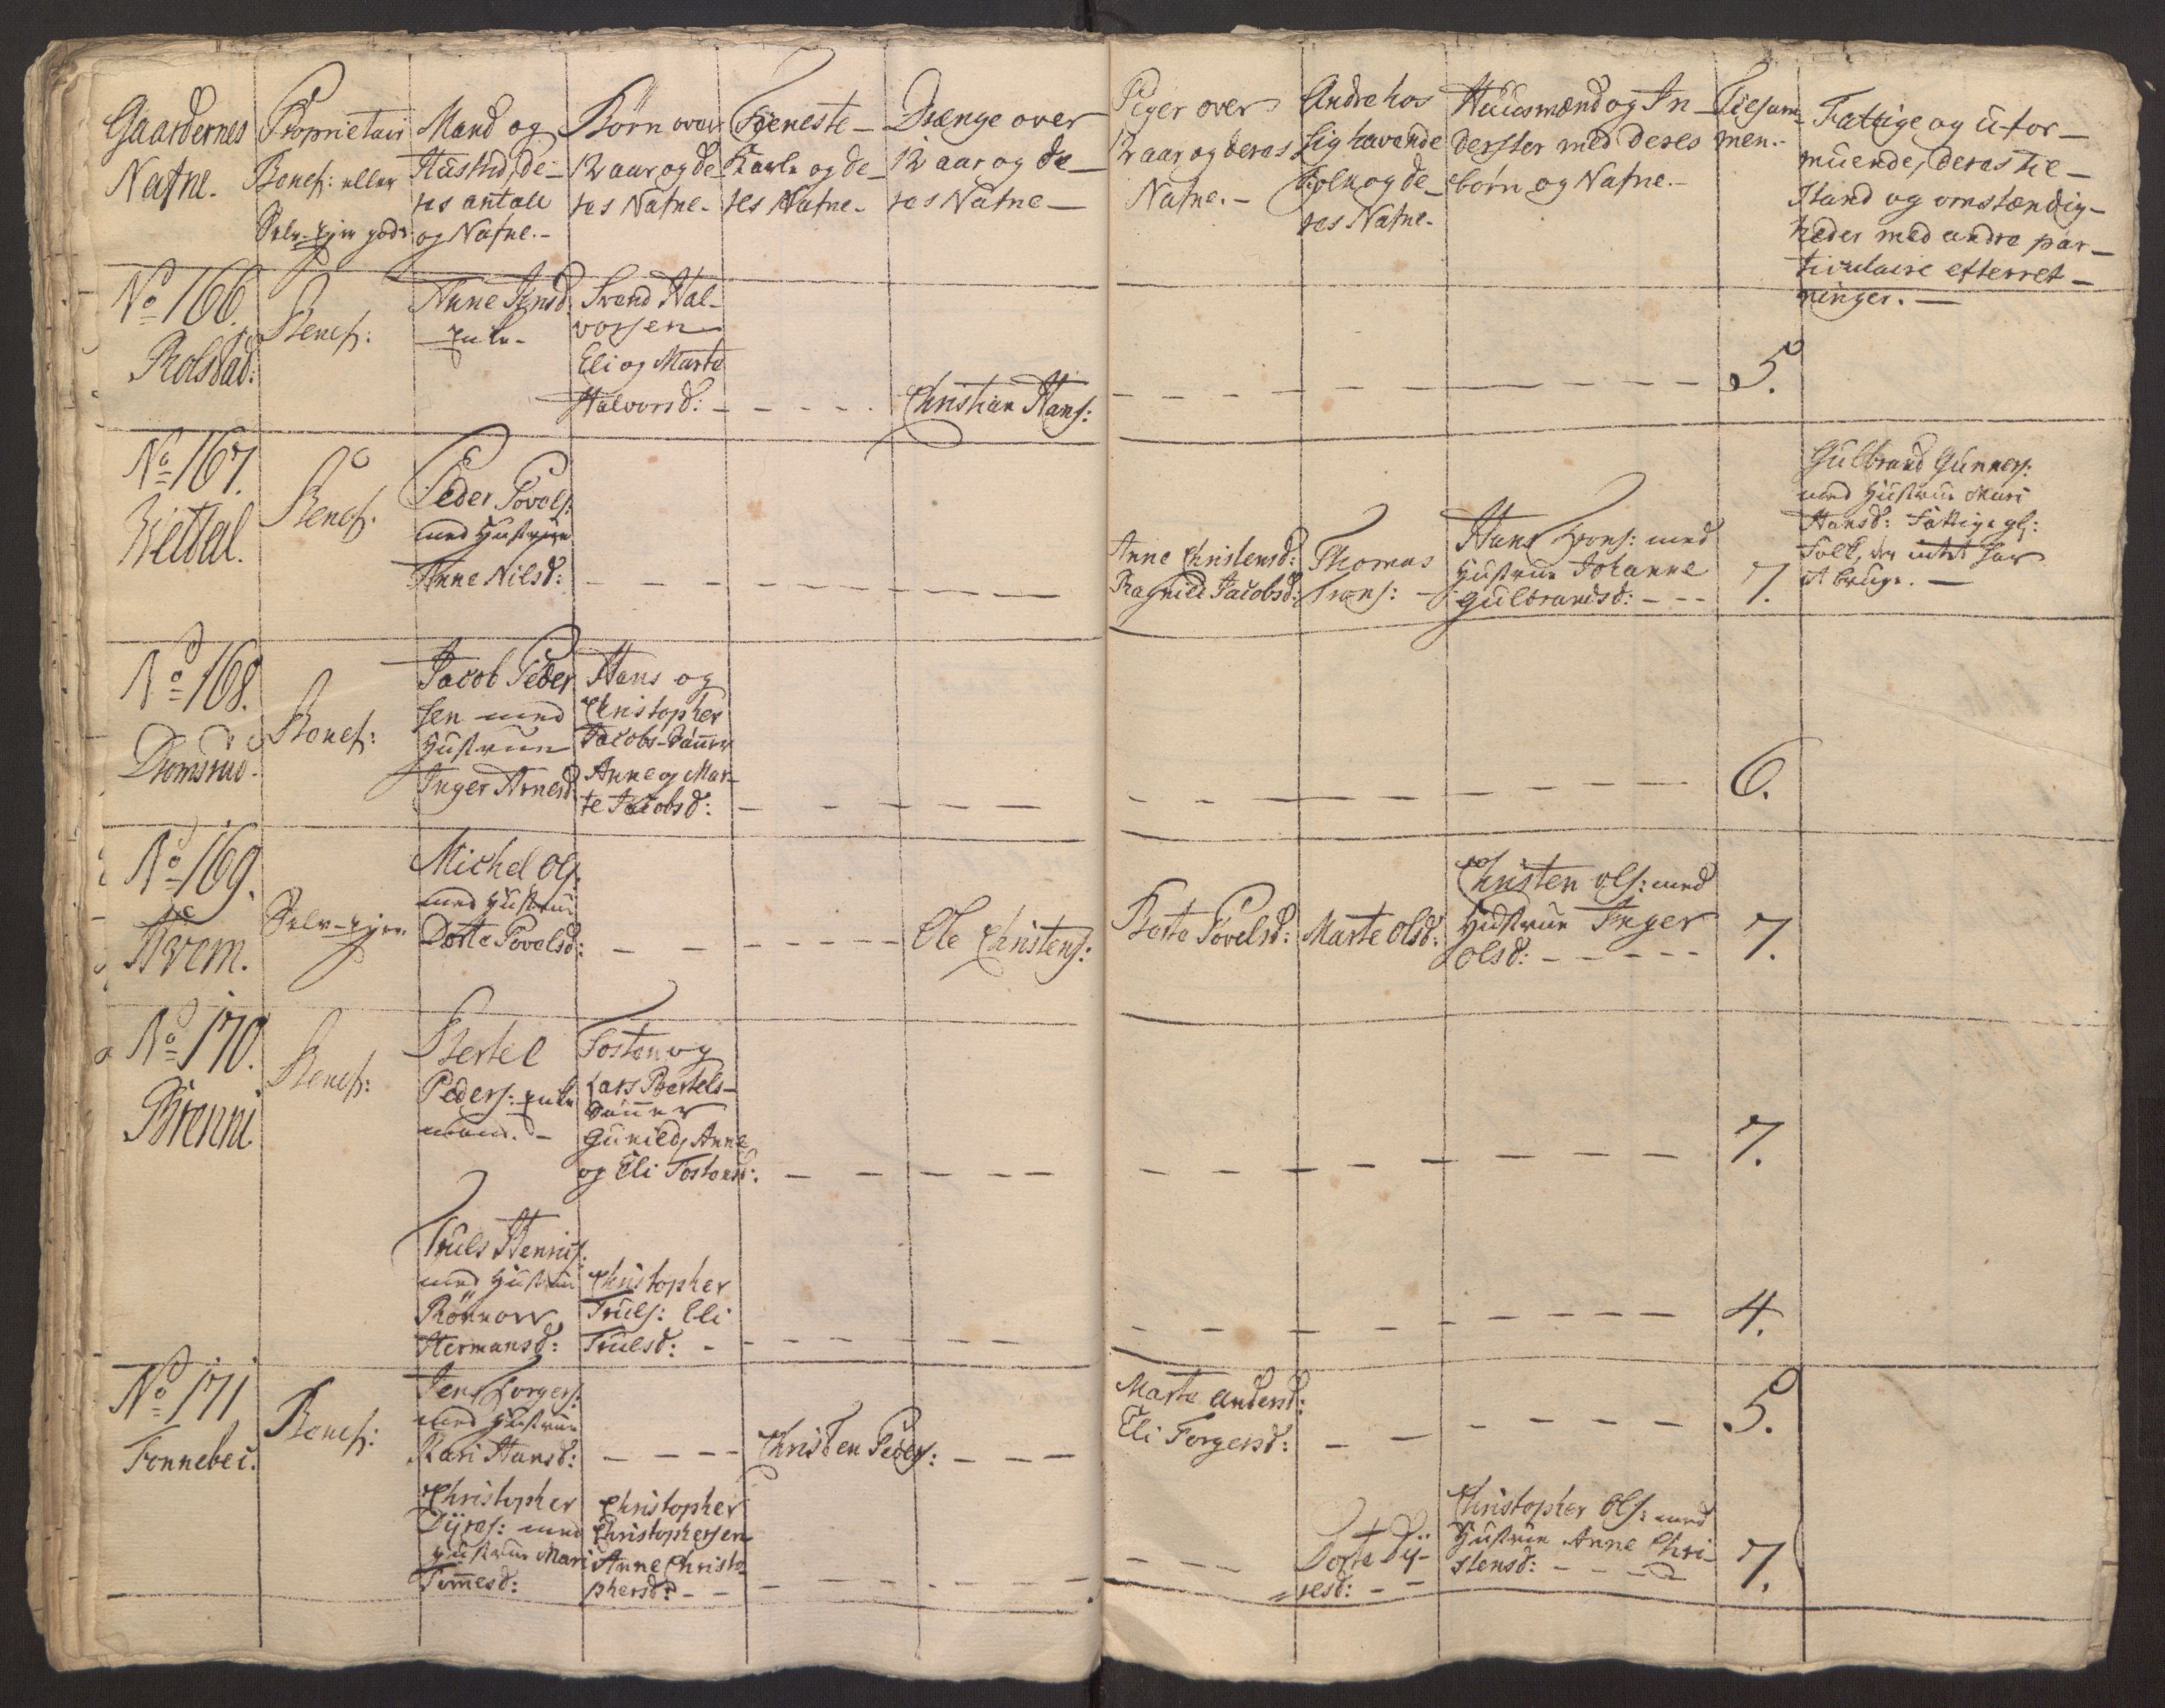 Gaardernes
Nafne.
Proprietair
Benef: eller
Selv-Ejer gods
Mand og
Hustrue, de-
res antall
og Nafne.-
Børn over
12 aar og de-
res Nafne-
Tjeneste-
Karle og de-
res Nafne-
Drænge over
12 aar og de-
res Nafne-
Piger over
12 aar og deres
Nafne.-
Andre hos
sig havende
folk og de-
res Nafne-
Huusmænd og In-
derster med deres
børn og Nafne.-
Tilsam-
men.-
Fattige og ufor-
muende, deres til-
stand og omstændig-
heder med andre par-
ticulaire efterret-
ninger.-
No 166.
Rolstad:
Benef:
Anne Jensd:
enke-
Svend Hal-
vorsen
Eli og Marte
Halvorsd: - - - - -
Christian Hans:
- - - - - - - - 5.
No 167.
Benef:
Peder Povels:
med Hustrue
Anne Nilsd: - - - - - - - -
Anne Christensd:
Ragnild Jacobsd:
Thomas
Frans: -
Hans med
Hustrue Johanne
Gulbrandsd: - - -
7.
Gulbrand Gunners:
med Hustrue Mari
Hansd: Fattige gl:
Folk, der intet har
at bruge. -
No 168.
Domsrud.
Benef:
Jacob Peder
sen med
Hustrue
Inger Arnesd
Hans og
Christopher
Jacobs-Sønner
Anne og Mar-
te Jacobsd: - - - - - -
- - - - - - - - 6.
No 169.
Kvem.
Selv-Ejer
Michel Ols:
med Hustrue
Dorte Povelsd: - - - - - - - -
Ole Christens:
Berte Povelsd:
Marte Olsd:
Christen Ols: med
Hustrue Inger
Olsd: - - - - -
7.
No 170.
Brenni
Benef:
Bertel
Peders: enke
mand. -
Tosten og
Lars Bertels-
Sønner
Gunild, Anne
og Eli Tostensd: - - - - - -
- - - - - - - - 7.
Truls Hennings:
med Hustrue
Rönnow
Hermansd:
Christopher
Truls: Eli
Trulsd: - - - - - - -
- - - - - - - - 4.
No 171
Fonnebei.
Benef:
Jens Torgers:
med Hustrue
Kari Hansd: - - - -
Christen Peders: - - -
Marte Andersd:
Eli Torgersd: - - - - - - -
5.
Christopher
Dyres: med
Hustrue Mari
Tommesd:
Christopher
Christophersen
Anne Christo-
phersd: - - - - - - - - -
- - -
Dorte Dy-
resd: - -
Christopher Ols: med
Hustrue Anne Chri-
stensd: - - - -
7.